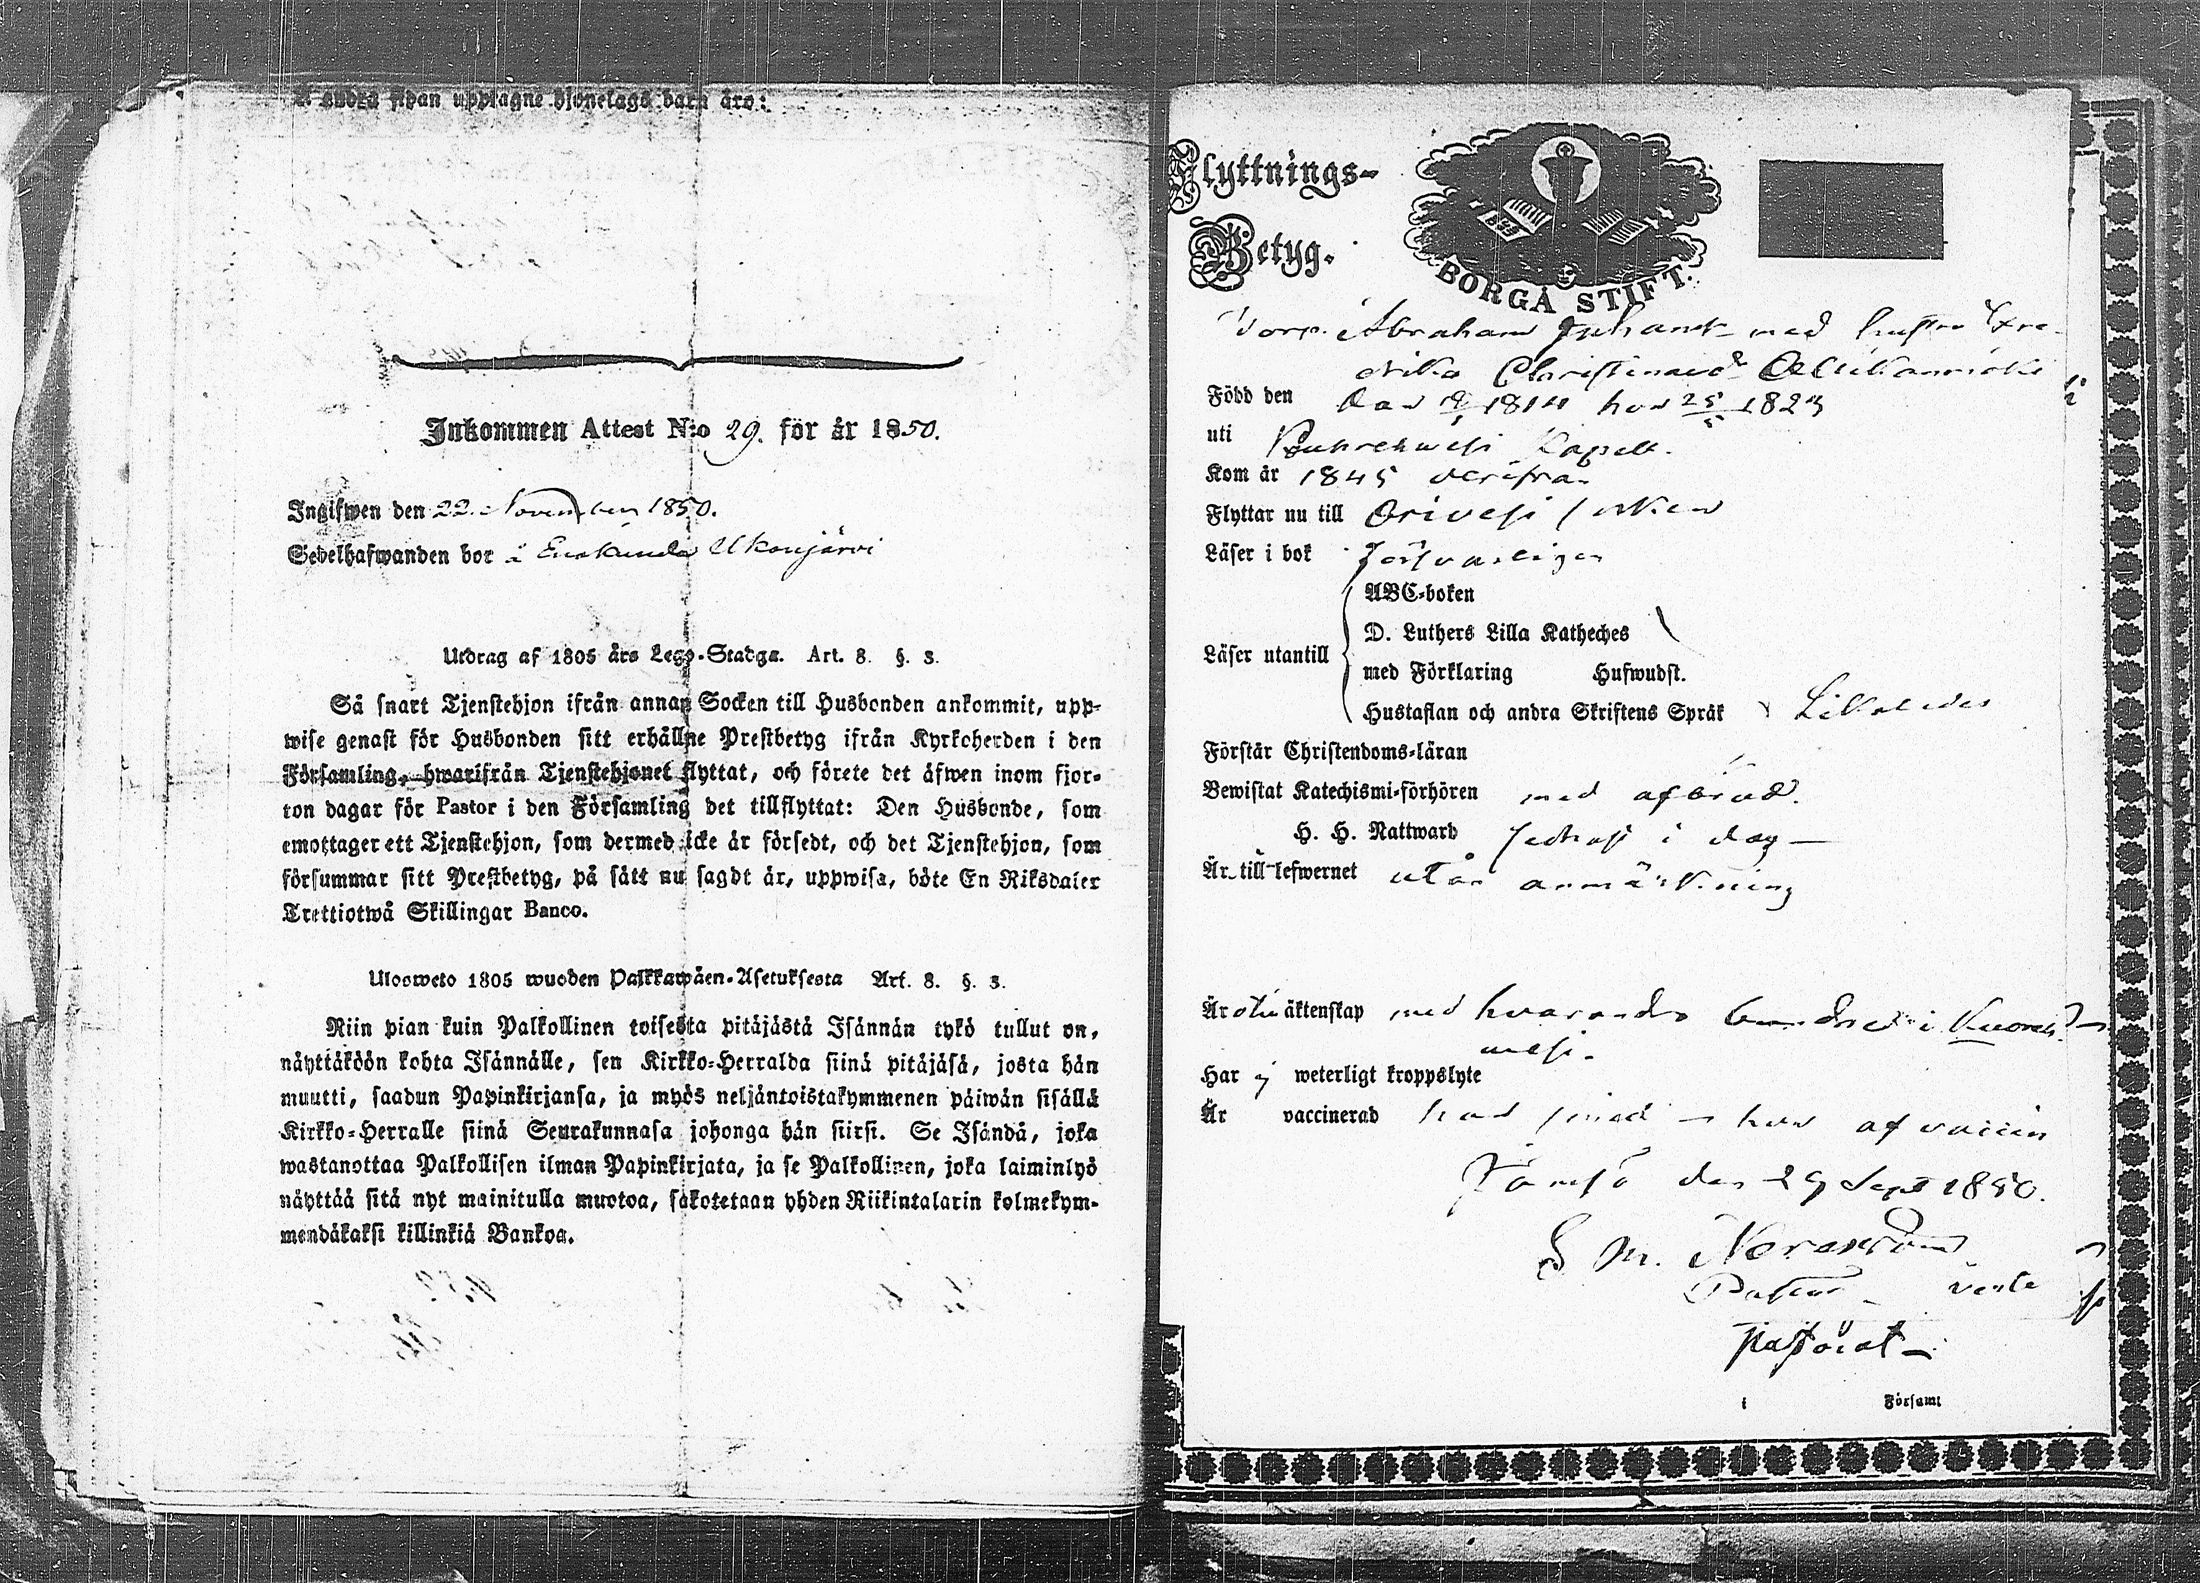 å andra sidan upptagne hjonelags barn äro:
Inkommen Attest N:o 29. för år 1850.
Ingifwen den 22. November 1850.
Sedelhafwanden bor i Enokunda Ukonjärvi
Utdrag af 1805 års Lego-Stadga. Art. 8. §. 3.
Så snart Tjenstehjon ifrån annan Socken till Husbonden ankommit, upp-
wise genast för Husbonden sitt erhållne Prestbetyg ifrån Kyrkoherden i den
Församling, hwarifrån Tjenstehjonet flyttat, och förete det äfwen inom fjor-
ton dagar för Pastor i den Församling det tillflyttat: Den Husbonde, som
emottager ett Tjenstehjon, som dermed icke är försedt, och det Tjenstehjon, som
försummar sitt Prestbetyg, på sätt nu sagdt är, uppwisa, böte En Riksdaler
Trettiotwå Skillingar Banco.
Ulosweto 1805 wuoden Palkkawäen-Asetuksesta Art. 8. §. 3.
Niin pian kuin Palkollinen toisesta pitäjästä Isännän tykö tullut on,
näyttäköön kohta Isännälle, sen Kirkko-Herralda siinä pitäjäsä, josta hän
muutti, saadun Papinkirjansa, ja myös neljäntoistakymmenen päiwän sisällä
Kirkko-Herralle siinä Seurakunnasa johonga hän siirsi. Se Isändä, joka
wastanottaa Palkollisen ilman Papinkirjata, ja se Palkollinen, joka laiminlyö
näyttää sitä nyt mainitulla muotoa, sakotetaan yhden Riikintalarin kolmekym-
mendäkaksi killinkiä Bankoa.
Flyttnings-
Betyg.
BORGÅ STIFT.
Torp. Abraham Johanss. med hustru Fre-
drika Christinaed
Född den han 1814 hon 25/5 1823
uti Kuhrehwesi Kapell.
Kom år 1845 derifrån
Flyttar nu till Orivesi socken
Läser i bok försvarligen
ABC-boken
D. Luthers Lilla Katheches
Läser utantill
med Förklaring Hufwudst.
Hustaflan och andra Skriftens Språk Likaledes
Förstår Christendoms-läran
Bewistat Katechismi-förhören med afbrott.
H. H. Nattward sednast i dag
Är till lefwernet utan anmärkning
Är äktenskap med hvarandra i Kuoreh-
wesi.
Har ej weterligt kroppslyte
Är vaccinerad han hon af vaccin
Jämsä den 29 Sept 1850.
S M. Norrström
Pastor
pastorat
i Församl